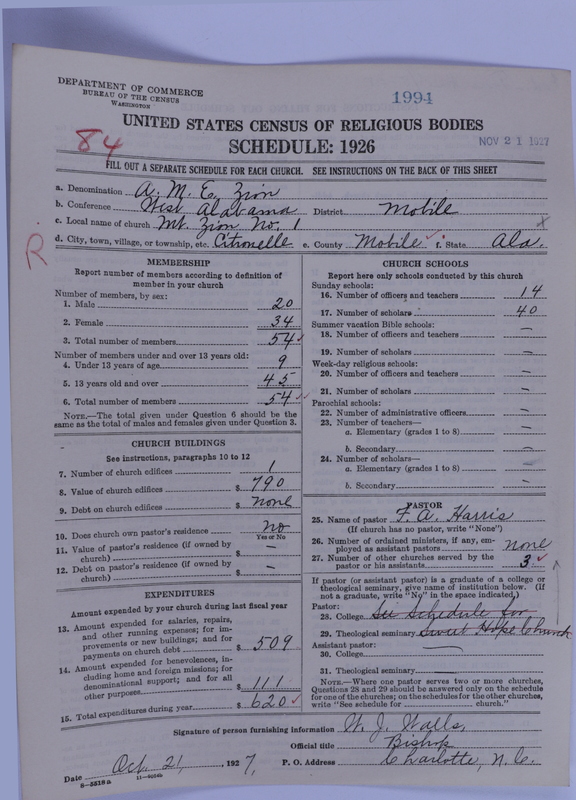 DEPARTMENT OF COMMERCE
BUREAU OF THE CENSUS
WASHINGTON
1994
UNITED STATES CENSUS OF RELIGIOUS BODIES
SCHEDULE: 1926
NOV 21 1927
84
FILL OUT A SEPARATE SCHEDULE FOR EACH CHURCH. SEE INSTRUCTIONS ON THE BACK OF THIS SHEET
R
a. Denomination A. M. E. Zion
b. Conference West Alabama District Mobile
c. Local name of church Mt. Zion No. 1
d. City, town, village, or township, etc. Citronelle e. County Mobile f. State Ala.
MEMBERSHIP
Report number of members according to definition of
member in your church
Number of members, by sex:
1. Male 20
2. Female 34
3. Total number of members 54
Number of members under and over 13 years old:
4. Under 13 years of age 9
5. 13 years old and over 45
6. Total number of members 54
NOTE.—The total given under Question 6 should be
same as the total of males and females given under Question 3.
CHURCH BUILDINGS
See instructions, paragraphs 10 to 12
7. Number of church edifices 1
8. Value of church edifices $ 790
9. Debt on church edifices $ none
10. Does church own pastor's residence no
Yes or No
11. Value of pastor's residence (if owned by
church) $ —
12. Debt on pastor's residence (if owned by
church) $ —
EXPENDITURES
Amount expended by your church during last fiscal year
13. Amount expended for salaries, repairs,
and other running expenses; for im-
provements or new buildings; and for
payments on church debt $ 509
14. Amount expended for benevolences, in-
cluding home and foreign missions; for
denominational support; and for all
other purposes $ 111
15. Total expenditures during year $ 620
CHURCH SCHOOLS
Report here only schools conducted by this church
Sunday schools:
16. Number of officers and teachers 14
17. Number of scholars 40
Summer vacation Bible schools:
18. Number of officers and teachers —
19. Number of scholars —
Week-day religious schools:
20. Number of officers and teachers —
21. Number of scholars —
Parochial schools:
22. Number of administrative officers —
23. Number of teachers—
a. Elementary (grades 1 to 8) —
b. Secondary —
24. Number of scholars—
a. Elementary (grades 1 to 8) —
b. Secondary —
PASTOR
25. Name of pastor F. A. Harris
(If church has no pastor, write "None")
26. Number of ordained ministers, if any, em-
ployed as assistant pastors none
27. Number of other churches served by the
pastor or his assistants 3
If pastor (or assistant pastor) is a graduate of a college or
theological seminary, give name of institution below. (If
not a graduate, write "No" in the space indicated)
Pastor:
28. College See Schedule for
29. Theological seminary Sweet Hope Church
Assistant pastor:
30. College —
31. Theological seminary
NOTE.—Where one pastor serves two or more churches,
Questions 28 and 29 should be answered only on the schedule
for one of the churches; on the schedules for the other churches,
write "See schedule for church."
Signature of person furnishing information W. J. Walls,
Official title Bishop
Date Oct. 21, 1927, P. O. Address Charlotte, N. C.
8—5518a